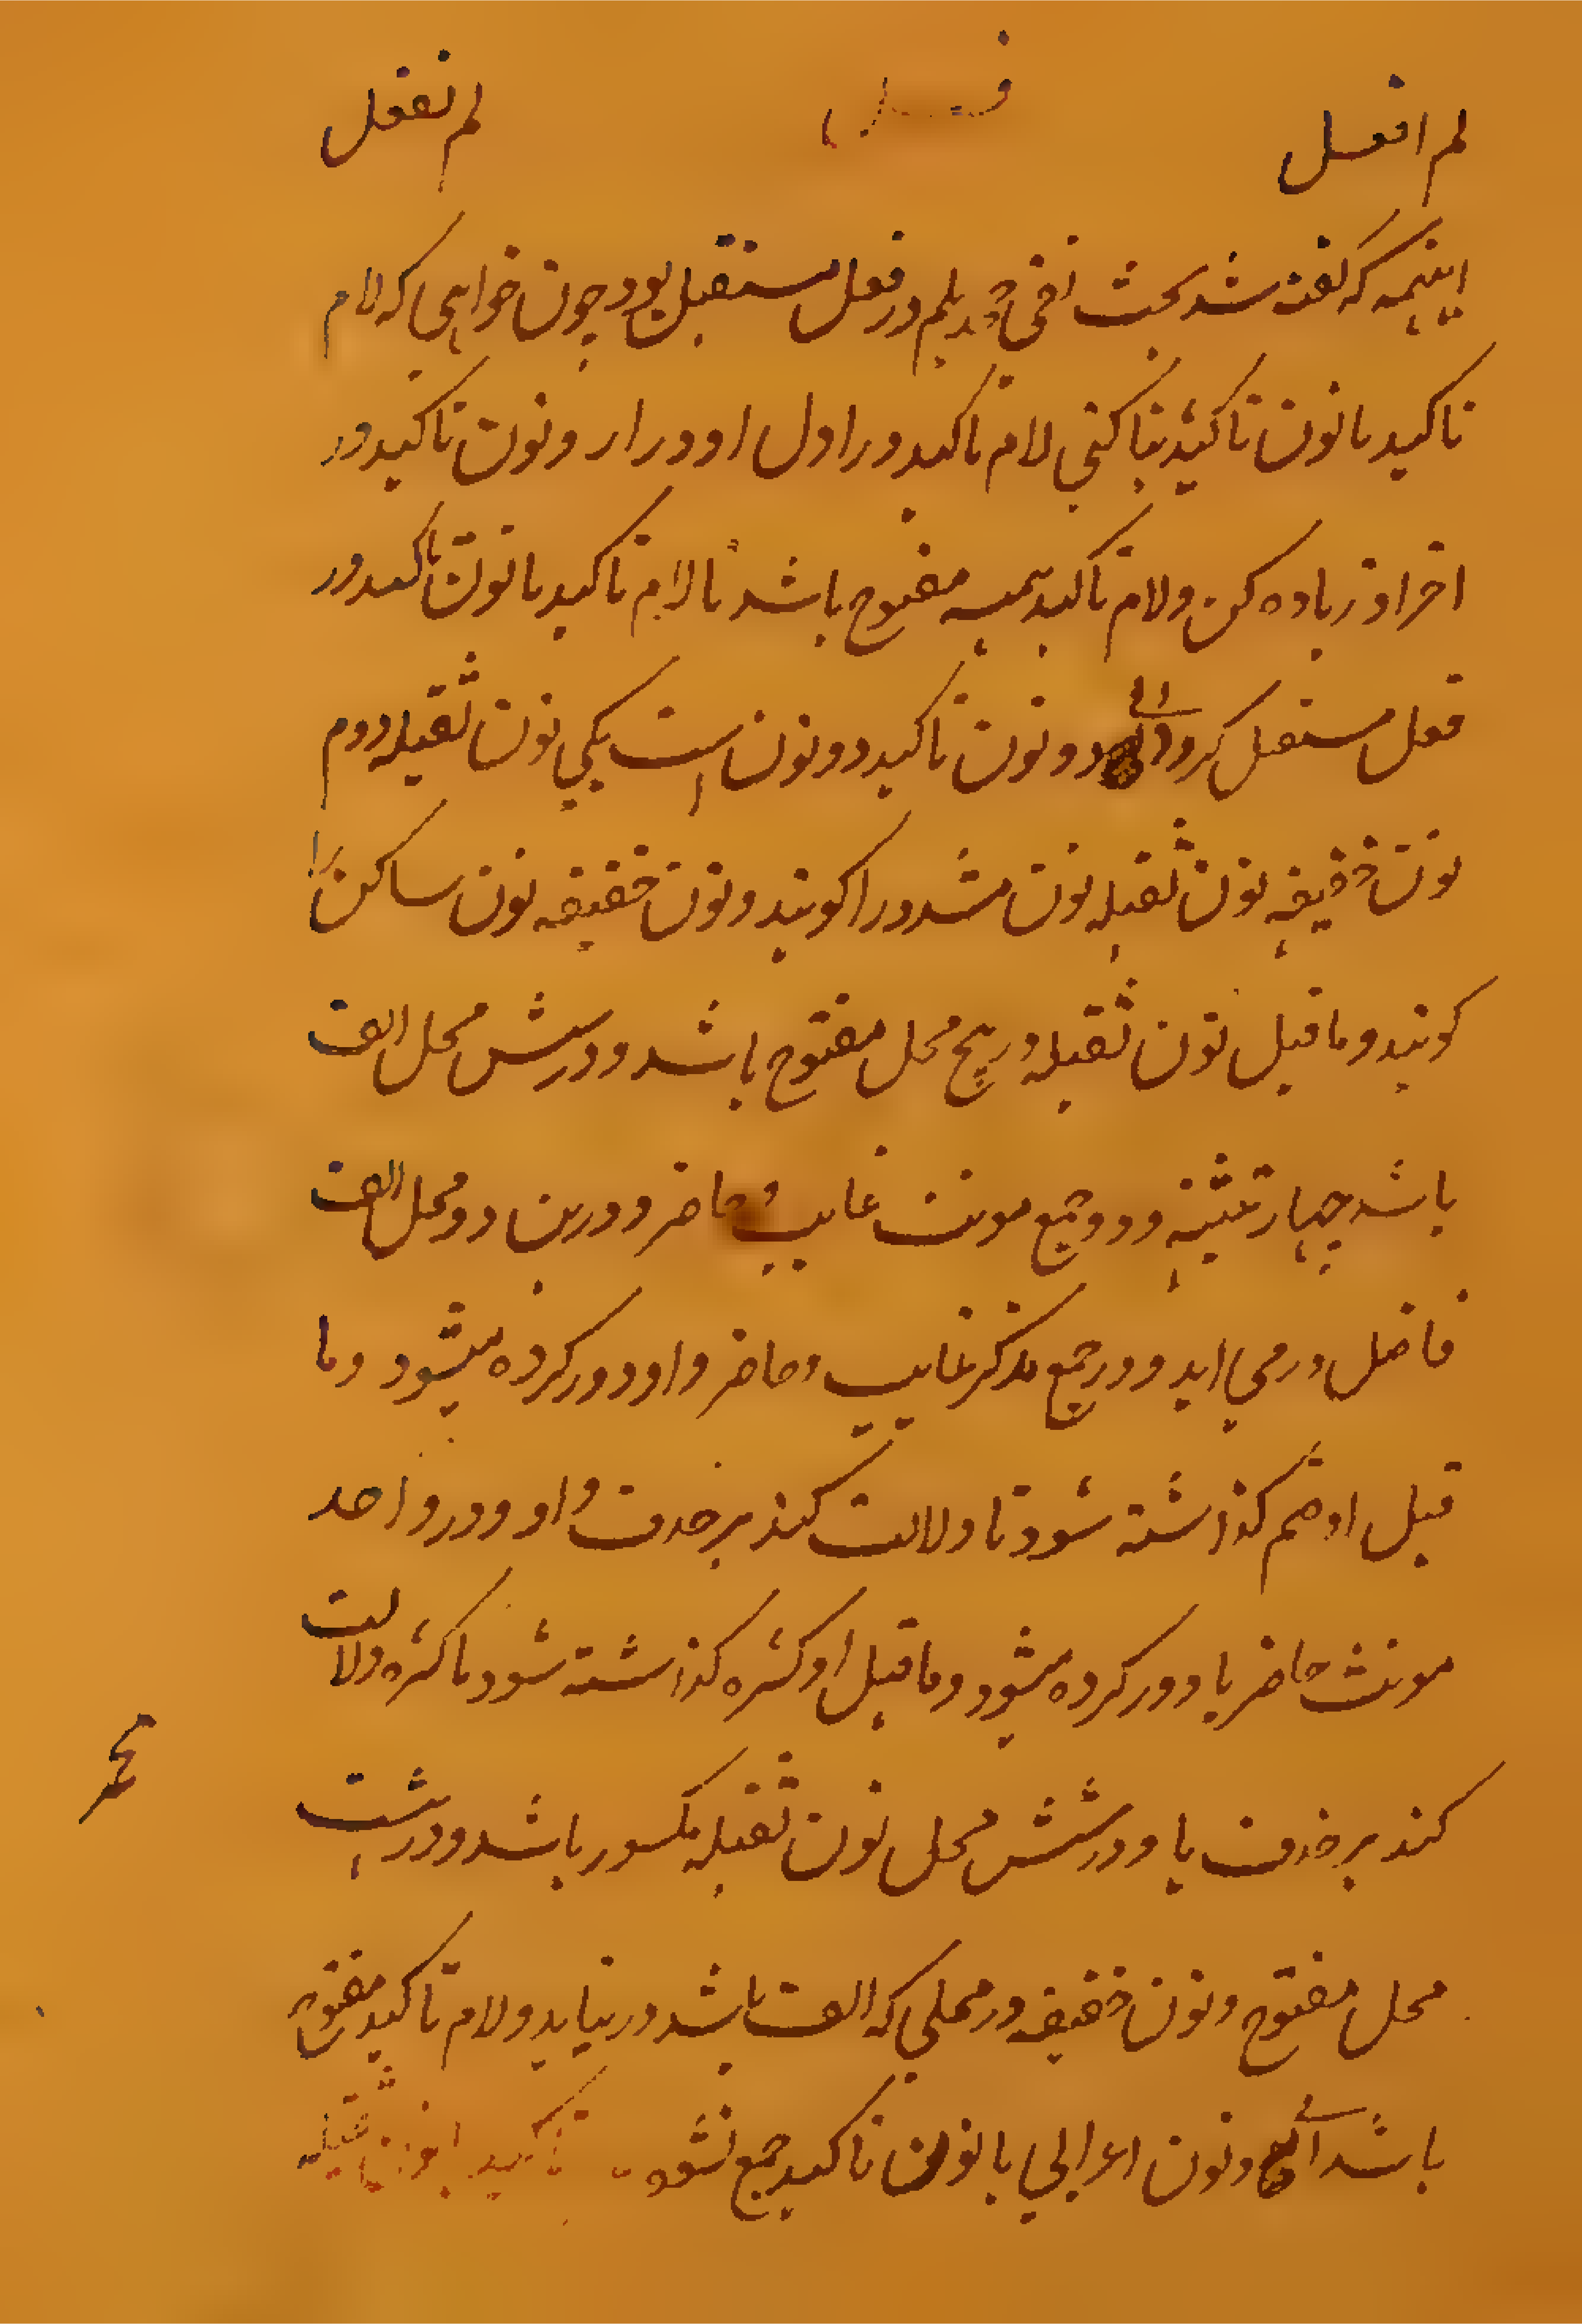 لم افعل فصل لم نفعل
اینهمه که گفته شد بحث نفی جحد بلم در فعل مستقبل بود چون خواهی که لام
تاکید با نون تاکید بنا کنی لام تاکید در اول او در ار و نون تاکید در
اخر او زیاده کن و لام تاکید همیشه مفتوح باشد تا لام تاکید با نون تاکید در
فعل مستقبل کرد و نون تاکید دو نون است یکی نون ثقیله دوم
نون خفیفه نون ثقیله نون مشدد را کویند و نون خفیفه نون ساکن را
کویند و ما قبل نون ثقیله در پنج محل مفتوح باشد و در شش محل الف
باشد چهار تثنیه و دو جمع مونث غایب و حاضر و درین دو محل الف
فاضل در می اید و در جمع مذکر غایب و حاضر واو دور کرده میشود و ما
قبل او ضم کذاشته شود تا دلالت کند بر حذف واو و در واحد
مونث حاضر یا دور کرده میشود و ما قبل او کسره کذاشته شود تا کسره دلالت
کند بر حذف یا و در شش محل نون ثقیله مکسور باشد و در هشت
محل مفتوح و نون خفیفه در محلی که الف باشد در نیاید و لام تاکید مفتوح
باشد و نون اعرابی با نون تاکید جمع نشود تاکید با نون ثقیله